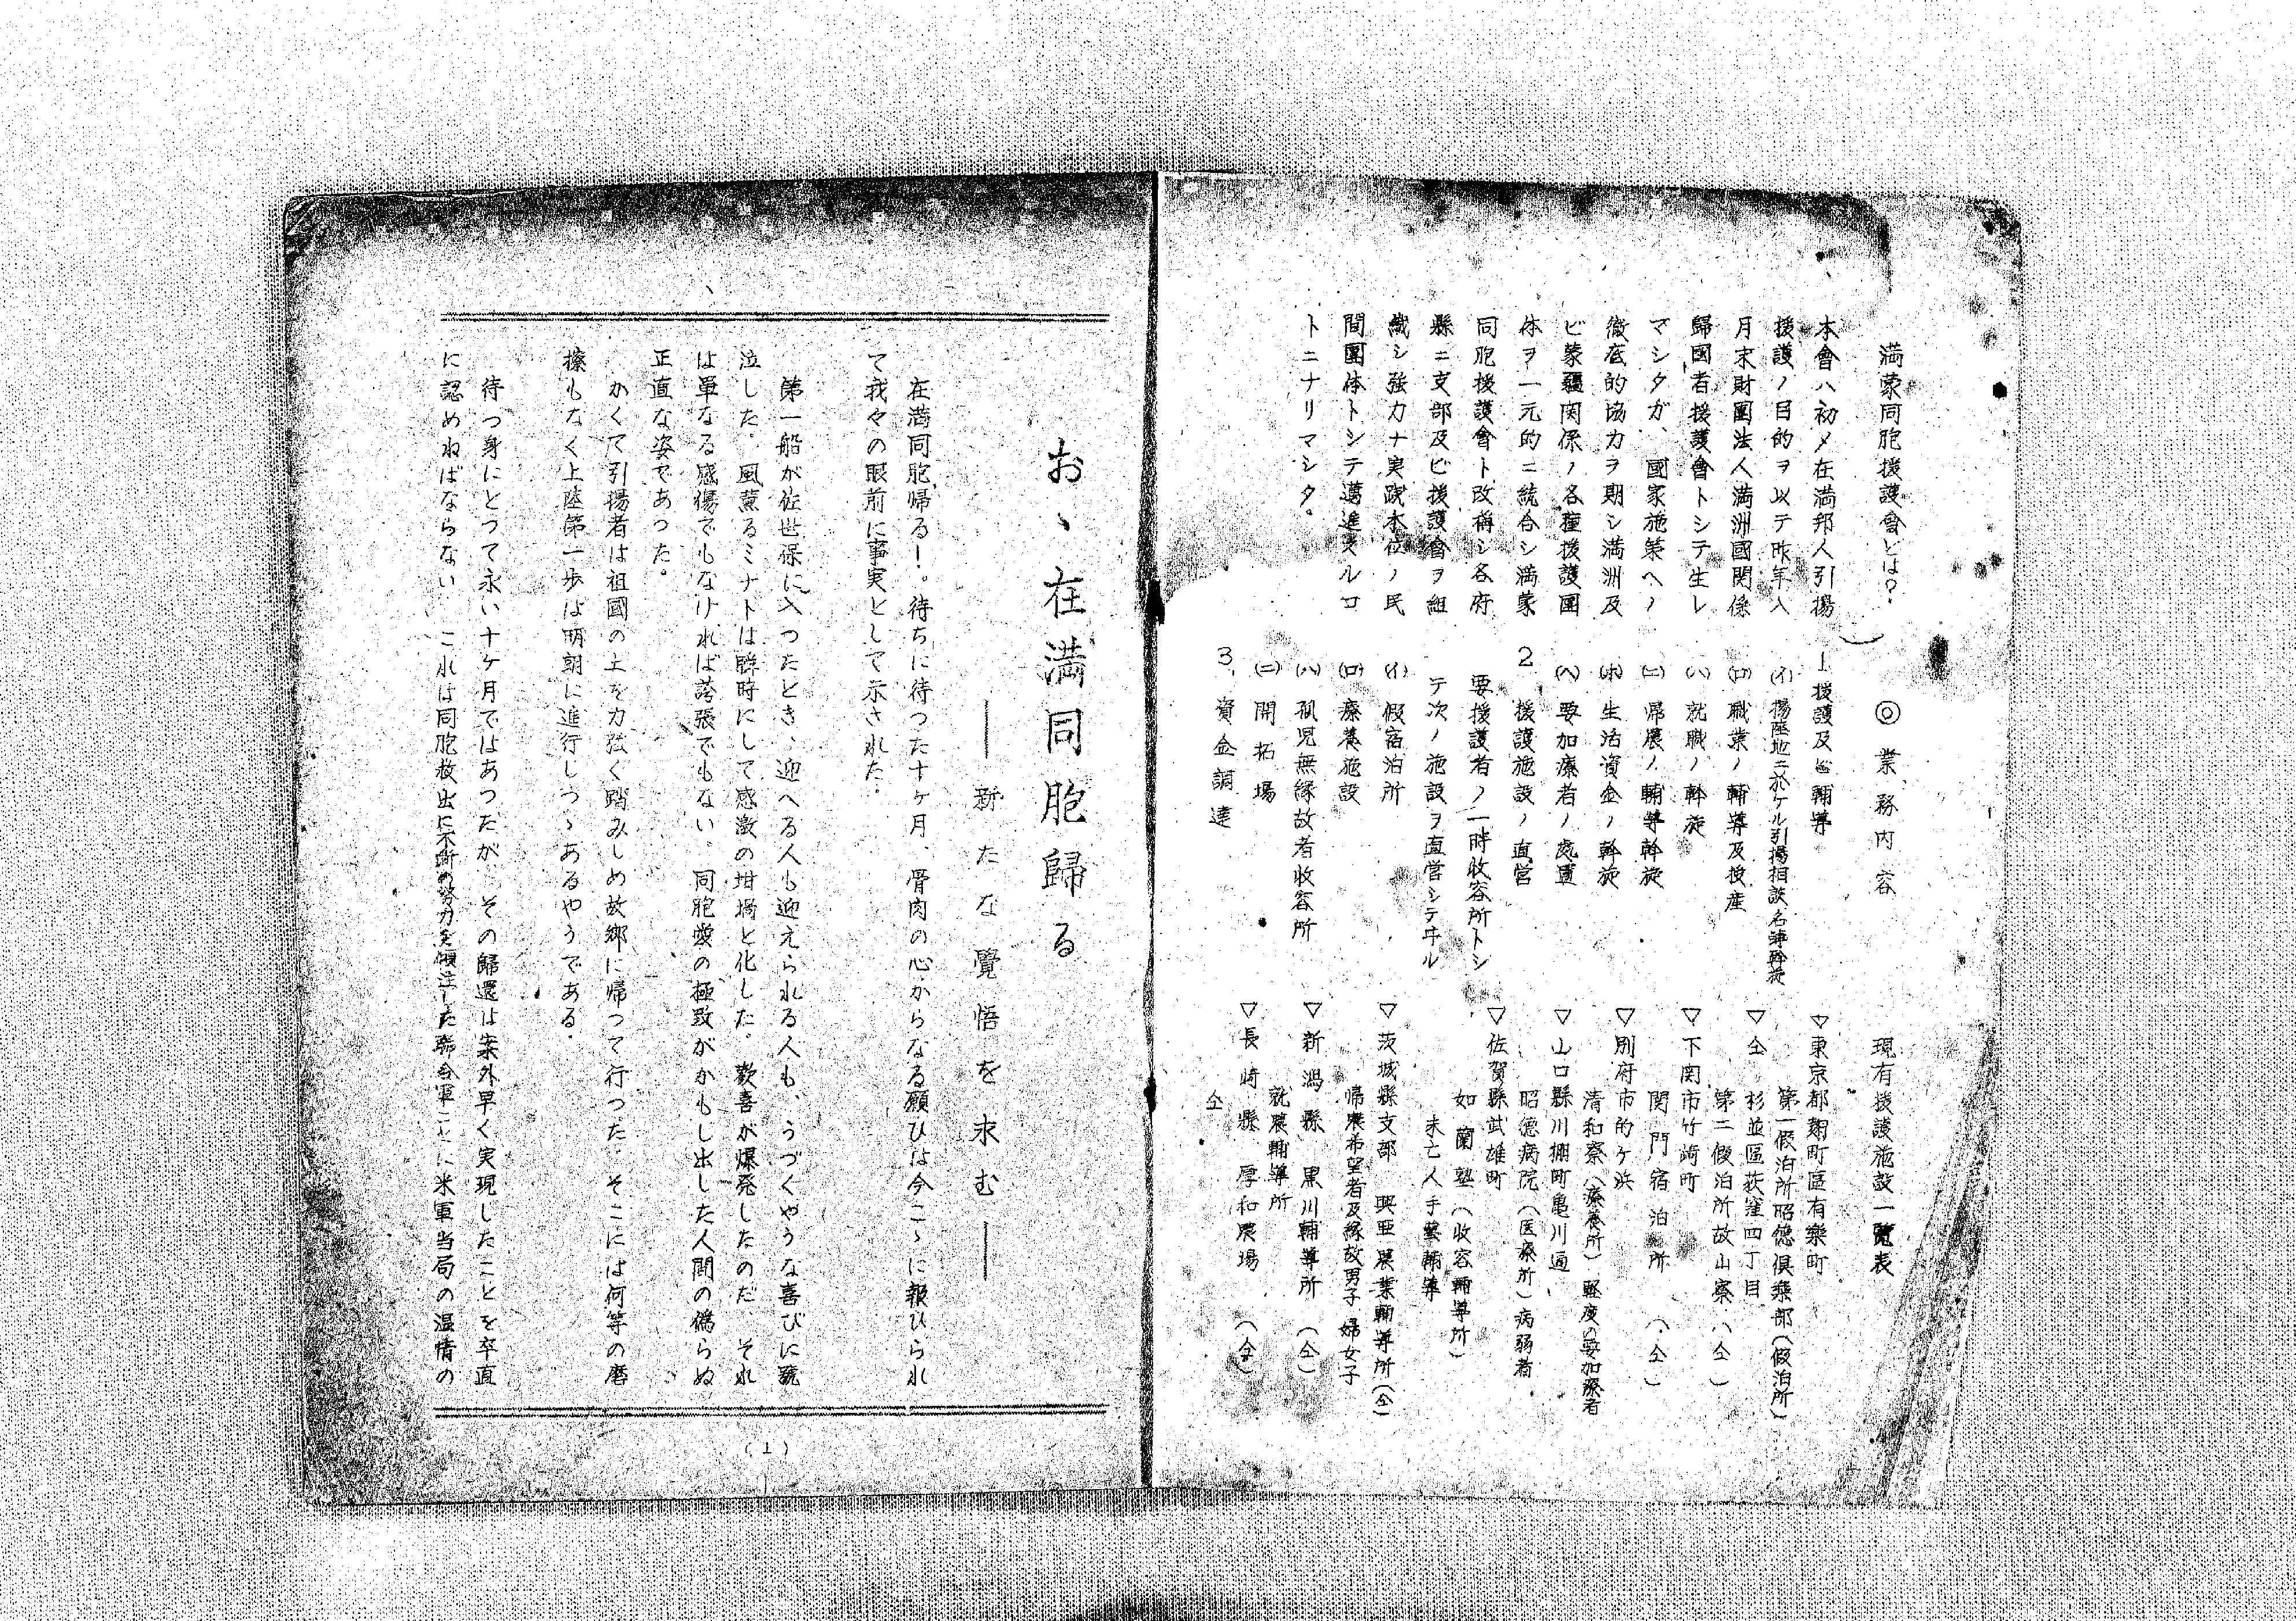 満蒙同胞援護會とは?
本會ハ初メ在満邦人引揚
援護ノ目的ヲ以テ昨年八
月末財團法人満洲國関係
歸國者援護會トシテ生レ
マシタガ、國家施策ヘノ
徹底的協力ヲ期シ満洲及
ビ蒙疆関係ノ各種援護團
体ヲ一元的ニ統合シ満蒙
同胞援護會ト改稱シ各府
縣ニ支部及ビ援護會ヲ組
織シ強力ナ実践本位ノ民
間團体トシテ邁進スルコ
トニナリマシタ。
◎業務内容
1 援護及ビ輔導
(イ) 揚陸地ニ於ケル引揚相談名簿斡旋
(ロ) 職業ノ輔導及授産
(ハ) 就職ノ斡旋
(ニ) 帰農ノ輔導斡旋
(ホ) 生活資金ノ斡旋
(ヘ) 要加療者ノ處置
2 援護施設ノ直営
要援護者ノ一時收容所トシ
テ次ノ施設ヲ直営シテヰル
(イ) 假宿泊所
(ロ) 療養施設
(ハ) 孤児無縁故者收容所
(ニ) 開拓場
3、資金調達
現有援護施設一覽表
▽東京都麹町區有樂町
第一假泊所昭徳倶樂部(假泊所)
▽仝 杉並區荻窪四丁目
第二假泊所故山寮(仝)
▽下関市竹崎町
関門宿泊所(仝)
▽別府市的ケ浜
清和寮(療養所)軽度ノ要加療者
▽山口縣川棚町亀川通
昭德病院(医療所)病弱者
▽佐賀縣武雄町
如蘭塾(收容輔導所)
未亡人手藝輔導
▽茨城縣支部 興亜農業輔導所(仝)
帰農希望者及縁故男子 婦女子
▽新潟縣 黒川輔導所(仝)
就農輔導所
▽長崎縣 厚和農場(仝)
仝
おゝ在満同胞歸る
――新たな覺悟を求む――
在満同胞帰る!。待ちに待つた十ヶ月、骨肉の心からなる願ひは今こゝに報ひられ
て我々の眼前に事実として示された。
第一船が佐世保に入つたとき、迎へる人も迎えられる人も、うづくやうな喜びに號
泣した。風薫るミナトは瞬時にして感激の坩堝と化した。歓喜が爆発したのだ。それ
は單なる感傷でもなければ誇張でもない。同胞愛の極致がかもし出した人間の僞らぬ
正直な姿であつた。
かくて引揚者は祖國の土を力弦く踏みしめ故郷に帰つて行つた。そこには何等の磨
擦もなく上陸第一歩は明朝に進行しつゝあるやうである。
待つ身にとつて永い十ケ月ではあつたが、その歸還は案外早く実現したことを卒直
に認めねばならない こ札は同胞救出に不断の努力を傾注した聯合軍ことに米軍当局の温情の
(1)